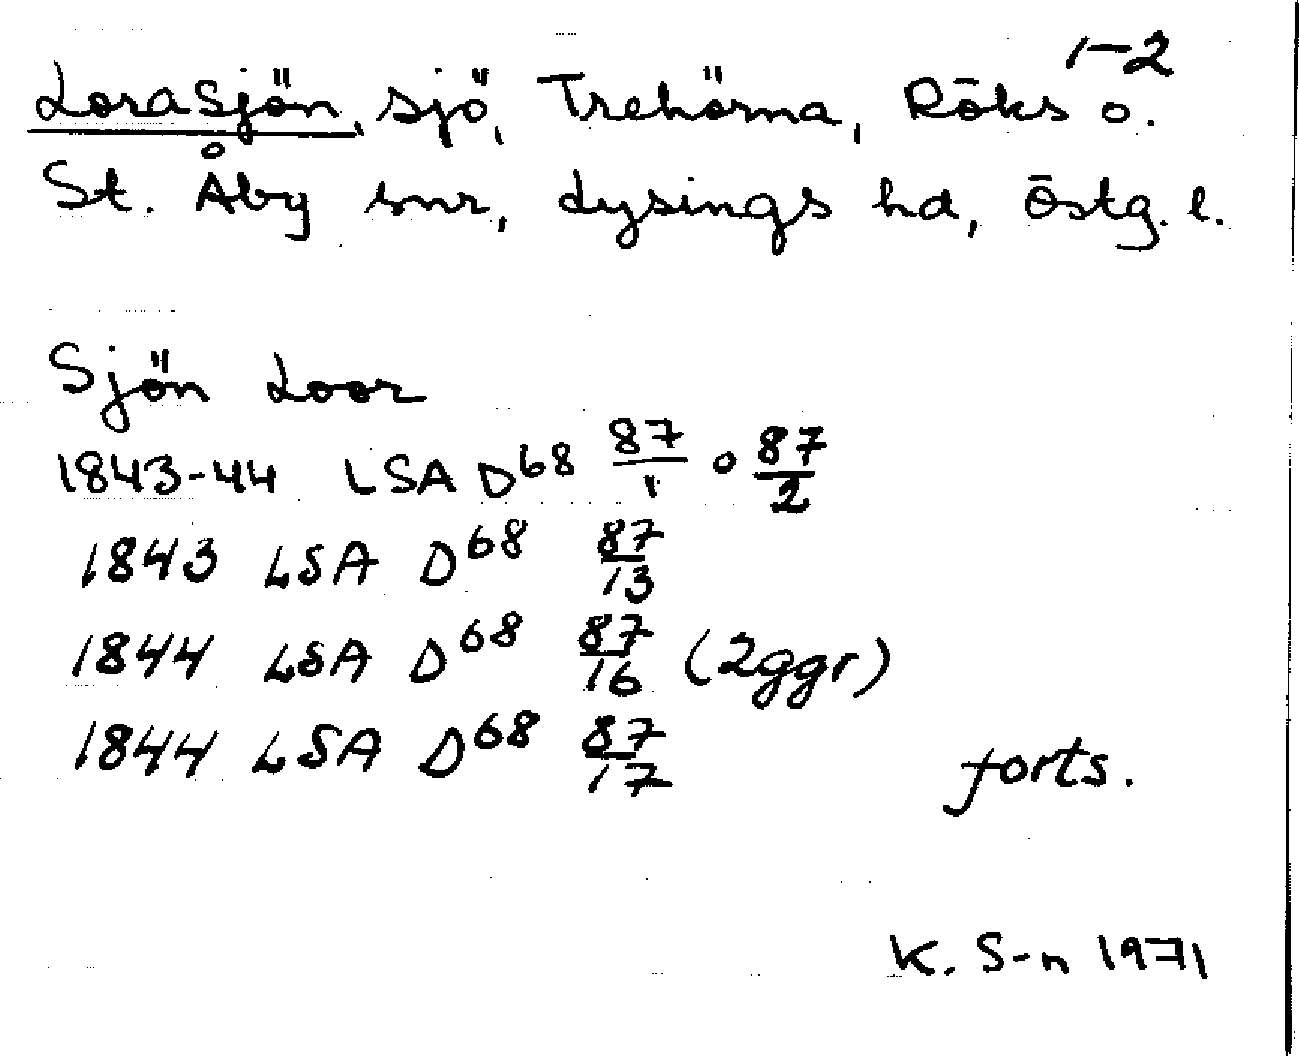 1-2
Lorasjön, sjö, Trehörna, Röks o.
St. Åby snr, Lysings hd, Östg. l.
Sjön Loor
1843-44 LSA D68 87/1 o 87/2
1843 LSA D68 87/13
1844 LSA D68 87/16 (2ggr)
1844 LSA D68 87/17
forts.
K. S-n 1971